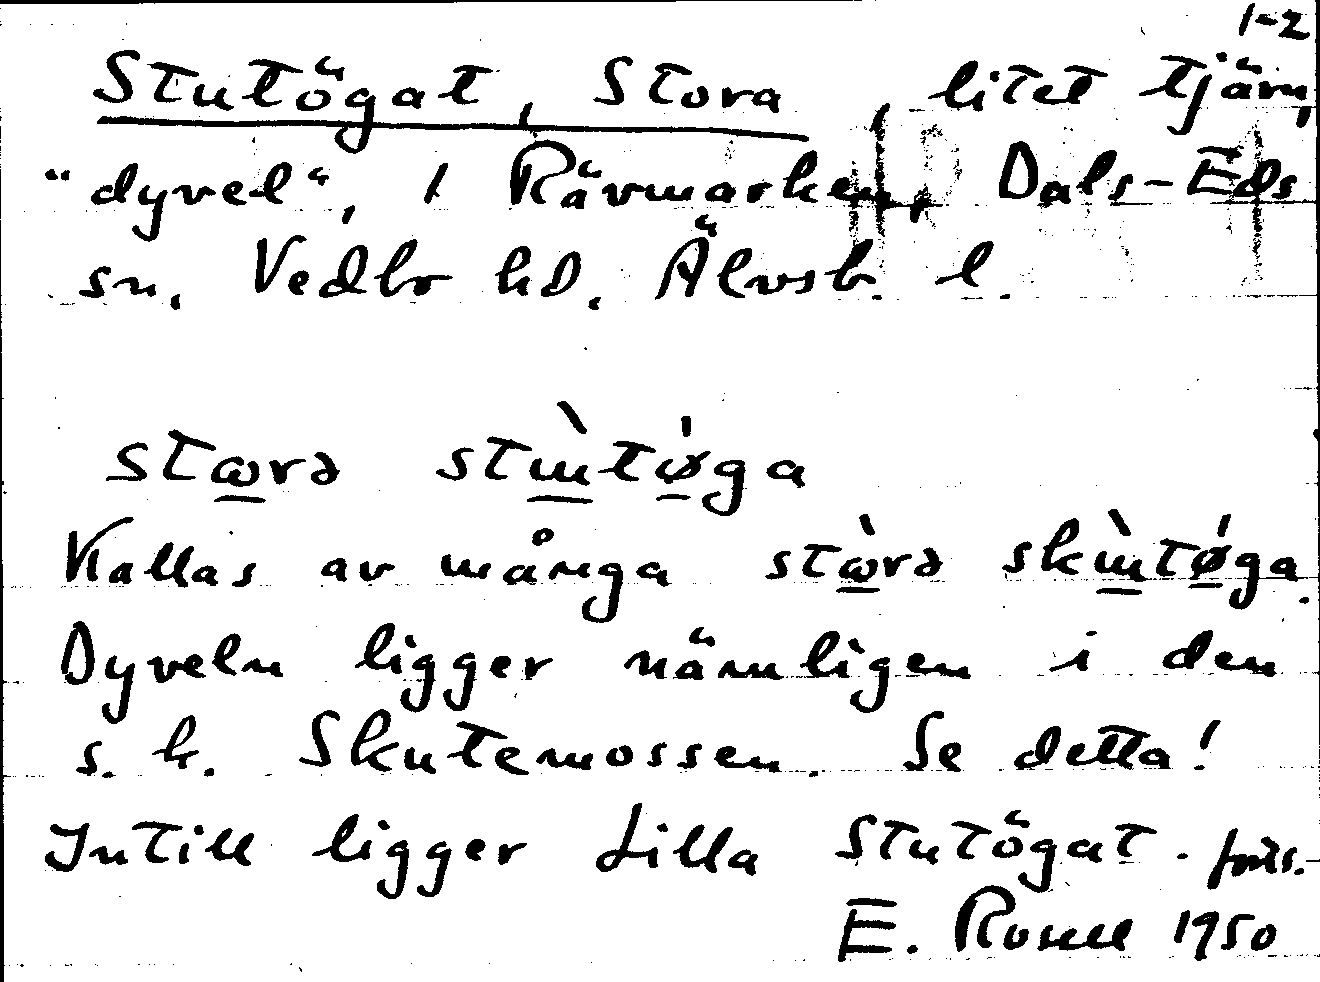 1-2
Stutögat, Stora, litet tjärn,
"dyvel", i Rävmarken, Dals-Eds
sn, Vedbo hd. Älvsb. l.
stɷrə stɯ̀tø̍ga
Kallas av många stɷ̀rə skɯ̀tø̍ga.
Dyveln ligger nämligen i den
s. k. Skutemossen. Se detta!
Intill ligger Lilla Stutögat. forts.
E. Rosell 1950